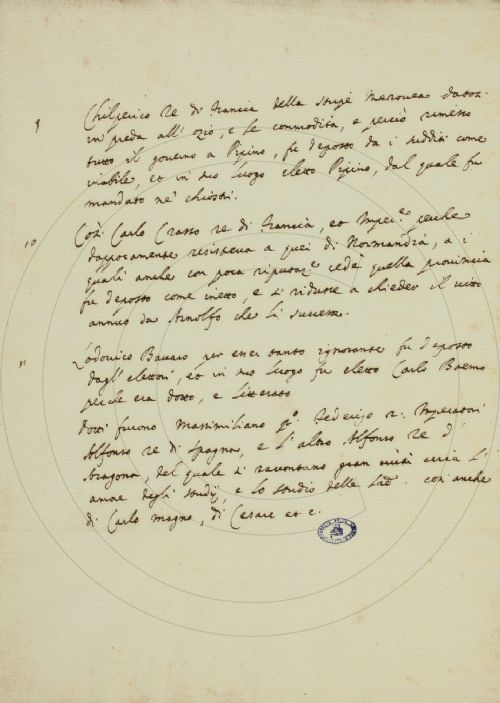 9 Chilperico Re di francia della stirpe Merovea datosi
in preda all' ozio, e le commodità, e perciò rimesso
tutto il governo a Pipino, fu deposto da i sudditi come
inabile, et in suo luogo eletto Pipino, dal quale fu
mandato ne' chiostri.
10 Così Carlo Crasso re di francia, et Imper.e perche
dappocamente resisteva a quei di Normandia, a i
quali anche con poca riputaz.e cedè quella provincia
fu deposto come inetto, e si ridusse a chieder il vitto
annuo da Arnolfo che li successe.
11 Lodovico Bavaro per esser tanto ignorante fu deposto
dagl' elettori, et in suo luogo fu eletto Carlo Boemo
perche era dotto, e litterato
dotti furono Massimiliano p.o federigo 2: Imperatori
Alfonso re di Spagna, e l' altro Alfonso re d'
Aragona, del quale si raccontano gran cose circa l'
amore degli studij, e lo studio delle così anche
di Carlo magno, di Cesare et c.